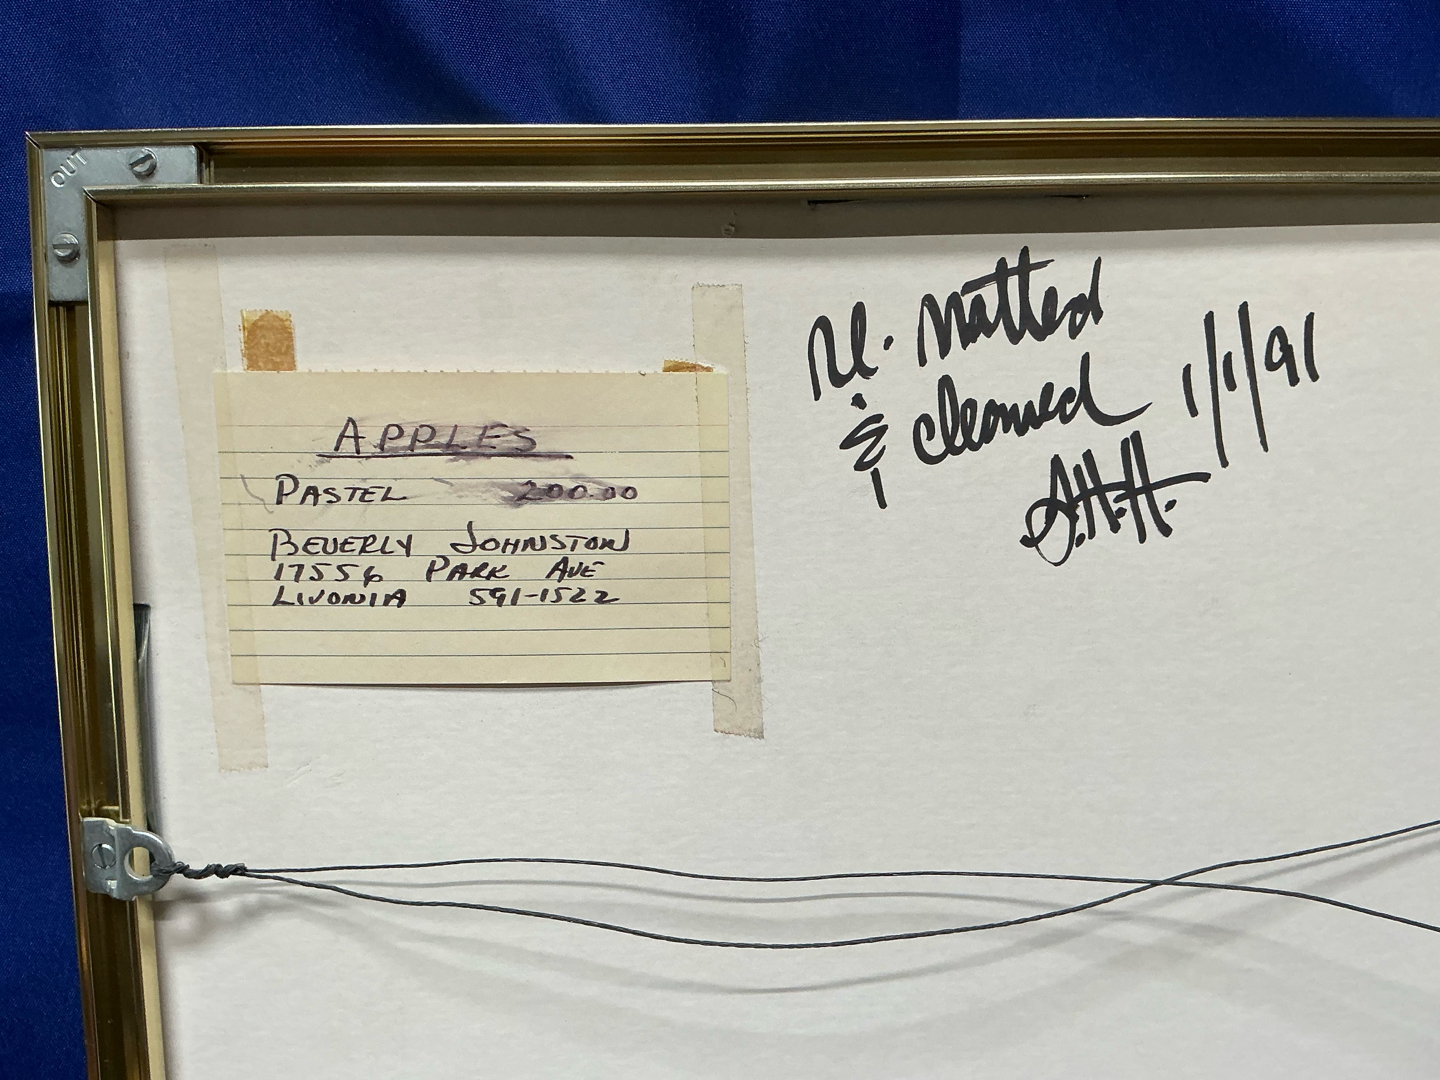 OUT
APPLES
PASTEL 200.00
BEVERLY JOHNSTON
17556 PARK AVE
LIVONIA 591-1522
Re. Matted
& cleaned 1/1/91
A.H.H.